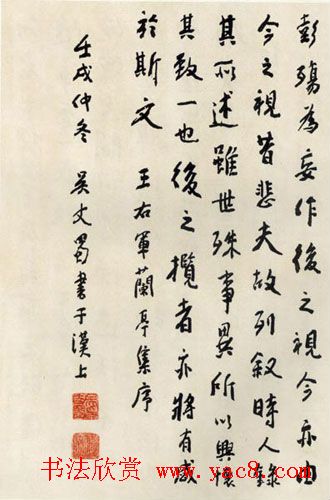 彭殤為妄作後之視今亦由
今之視昔悲夫故列敘時人錄
其所述雖世殊事異所以興懷
其致一也後之攬者亦將有感
於斯文 王右軍蘭亭集序
壬戌仲冬 吳丈蜀書于漢上
书法欣赏 www.yac8.com